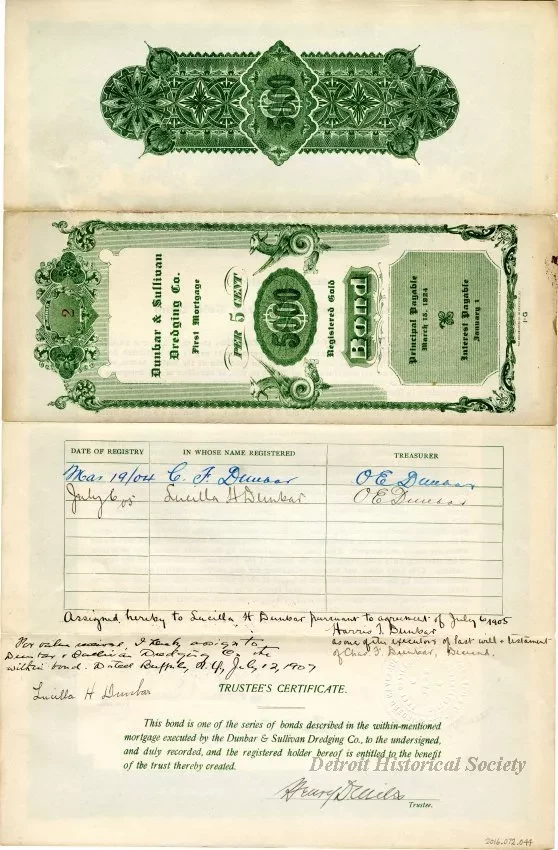 5000
2
Dunbar & Sullivan
Dredging Co.
First Mortgage
PER 5 CENT
5000
Registered Gold
Bond
Principal Payable
March 15, 1924
Interest Payable
January 1
DATE OF REGISTRY IN WHOSE NAME REGISTERED TREASURER
Mar 19/04 C. F. Dunbar O E Dunbar
July 6, 05 Lucilla H Dunbar O E Dunbar
Assigned hereby to Lucilla H Dunbar pursuant to agreement of July 6 1905
Harris T. Dunbar
as one of the executors of last will & testament
of Chas F. Dunbar, Deceased.
For value received, I hereby assign to
Dunbar & Sullivan Dredging Co the
within bond. Dated Buffalo, N.Y, July 12, 1907
Lucilla H Dunbar
TRUSTEE'S CERTIFICATE.
This bond is one of the series of bonds described in the within-mentioned
mortgage executed by the Dunbar & Sullivan Dredging Co., to the undersigned,
and duly recorded, and the registered holder hereof is entitled to the benefit
of the trust thereby created.
Detroit Historical Society
Henry
Trustee.
2016.072.044